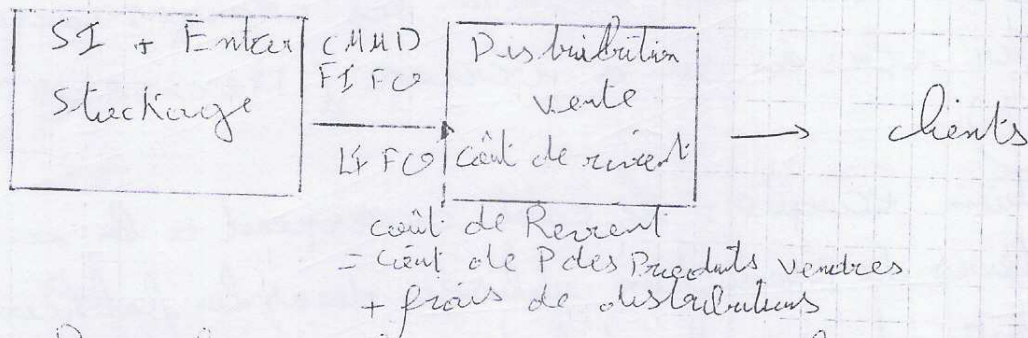 SI + Entrer
Stockage
CMUD
FIFO
LIFO
Distribution
vente
Coût de revient
clients
coût de Revient
= coût de P des Produits vendues
+ frais de distributions